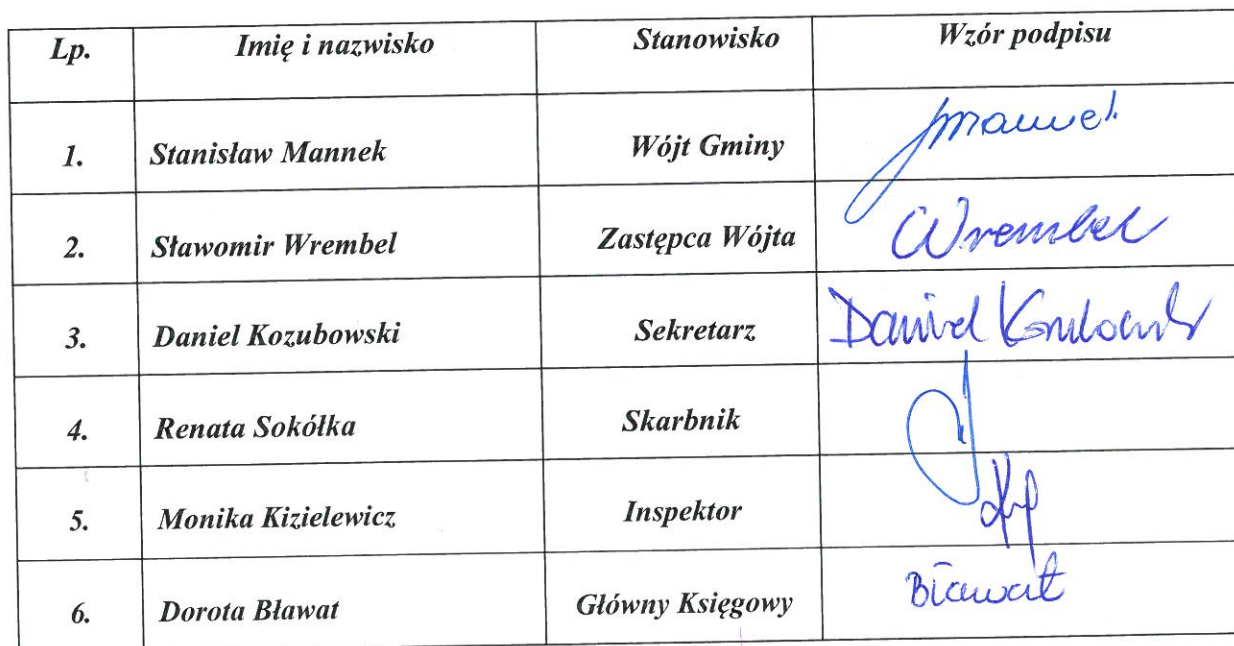 Lp. Imię i nazwisko Stanowisko Wzór podpisu
1. Stanisław Mannek Wójt Gminy
2. Sławomir Wrembel Zastępca Wójta Wrembel
3. Daniel Kozubowski Sekretarz Daniel
4. Renata Sokółka Skarbnik
5. Monika Kizielewicz Inspektor
6. Dorota Bławat Główny Księgowy Bławat